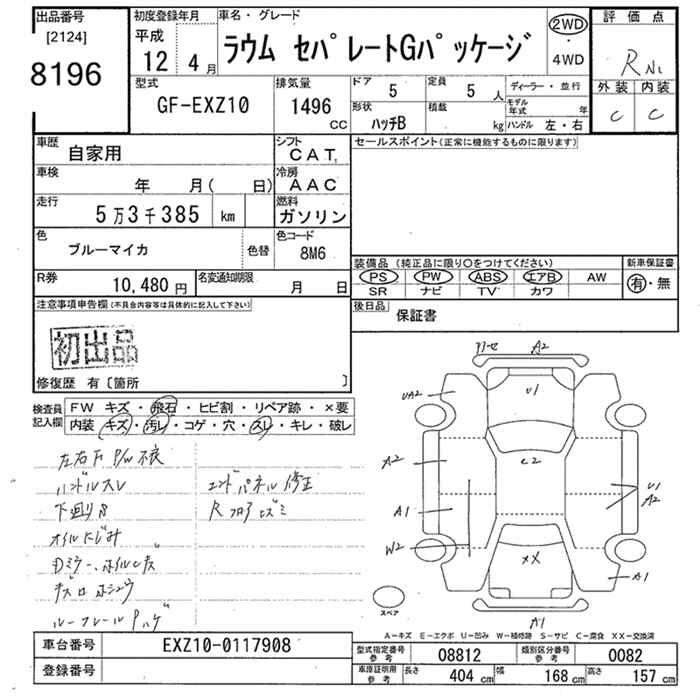 出品番号 [2124] 8196
初度登録年月 平成 12年 4月
車名・グレード ラウム セパレートGパッケージ
2WD・4WD
評価点 R
外装 内装
C C
型式 GF-EXZ10
排気量 1496 CC
ドア 5
定員 5人
ディーラー・並行
形状 ハッチB
積載 kg
モデル年式 年
ハンドル 左・右
車歴 自家用
シフト CAT
セールスポイント(正常に機能するものに限ります)
車検 年 月( 日)
冷房 AAC
走行 5万3千385 km
燃料 ガソリン
色 ブルーマイカ 色替
色コード 8M6
装備品(純正品に限り○をつけてください)
新車保証書
PS PW ABS エアB AW
有・無
SR ナビ TV カワ
R券 10,480円
名変通知期限 月 日
後日品 保証書
注意事項申告欄(不具合内容等は具体的に記入して下さい)
初出品
修復歴 有〔箇所 〕
検査員記入欄
FW キズ・飛石・ヒビ割・リペア跡・×要
内装 キズ・汚レ・コゲ・穴・スレ・キレ・破レ
左右F P/W不良
ハンドルスレ エンドパネル修正
下廻りサ Rフロアヒズミ
オイルにじみ
ルーフレールPハゲ
A2
UA2 U1
A2 C2
U1
A2
A1
W2
XX
A1
A1
スペア
A-キズ E-エクボ U-凹み W-補修跡 S-サビ C-腐食 XX-交換済
車台番号 EXZ10-0117908
型式指定番号 参考 08812
類別区分番号 参考 0082
登録番号
車庫証明用 参考 長さ 404cm 幅 168cm 高さ 157cm